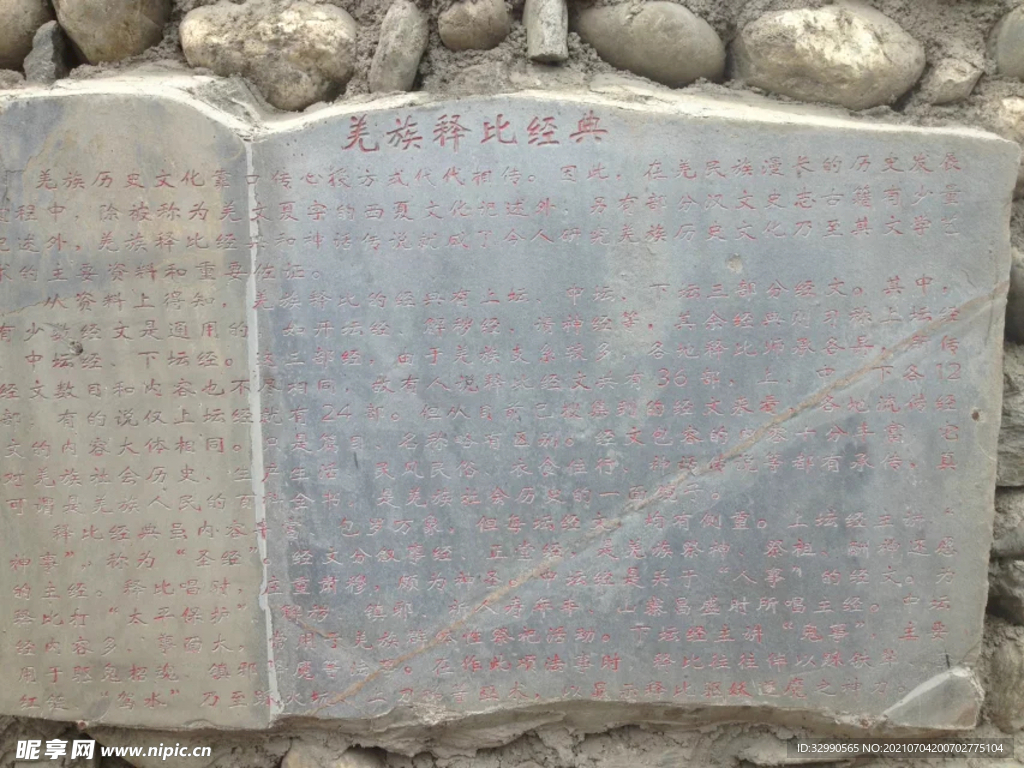 羌族释比经典
羌族历史文化靠口传心授方式代代相传。因此，在羌民族漫长的历史发展
程中，除被称为羌文夏字的西夏文化记述外，另有部分汉文史志古籍有少量
记述外，羌族释比经典和神话传说就成了今人研究羌族历史文化乃至其文学艺
术的主要资料和重要佐证。
从资料上得知，羌族释比的经典有上坛、中坛、下坛三部分经文。其中，
有少数经文是通用的，如开坛经、解秽经、请神经等。其余经典则习称上坛经
、中坛经、下坛经。这三部经，由于羌族支系较多，各地释比师承各异，所传
经文数目和内容也不尽相同，故有人说释比经文共有36部，上、中、下各12
部，有的说仅上坛经就有24部。但从目前已搜集到的经文来看，各地流传经
文的内容大体相同。只是篇目、名称各有区别。经文包容的内容十分丰富，它
对羌族社会历史、生产生活、民风民俗、衣食住行、神话传说等都有承传，真
可谓是羌族人民的百科全书，是羌族社会历史的一面镜子。
释比经典虽内容丰富、包罗万象，但每坛经文，均有侧重。上坛经主讲“
神事”，称为“圣经”，经文分叙事经、正堂经，是羌族祭神、祭祖、酬神还愿
的主经。释比唱时，庄重肃穆，颇为神圣。中坛经是关于“人事”的经文。为
释比打“太平保护”、解秽、镇邪、祈人寿年丰、山寨昌盛时所唱主经。中坛
经内容多、覆面大，常用于羌族群众性祭祀活动。下坛经主讲“鬼事”，主要
用于驱鬼招魂、镇邪 魔等法事。在作此项法事时，释比往往伴以踩铧头、
红 、“驾水”乃至 火 、 ，以显示释比驱妖 魔之神力。
昵享网 www.nipic.cn
ID:32990565 NO:20210704200702775104